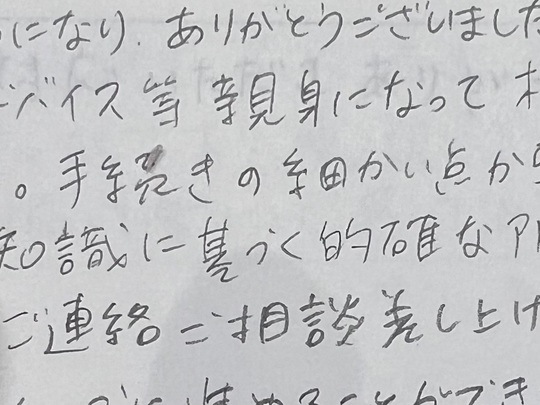 になり、ありがとうございました
バイス等親身になって
。手続きの細かい点から
知識に基づく的確なア
ご連絡ご相談差し上げ
めることができ